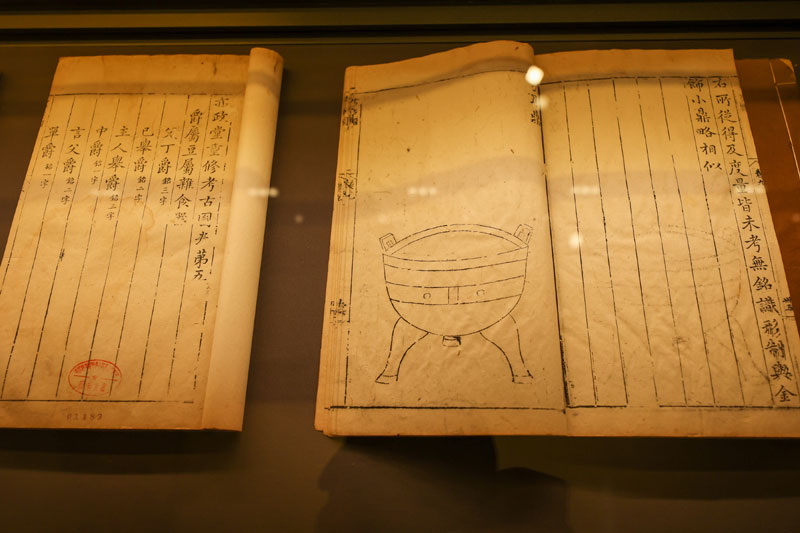 亦政堂重修考古圖卷第五
爵屬豆屬雜食器
父丁爵 銘三字
己舉爵 銘二字
主人舉爵 銘二字
中爵 銘一字
言父爵 銘三字
單爵 銘一字
右所從得及度量皆未考無銘識形制與金
飾小鼎略相似